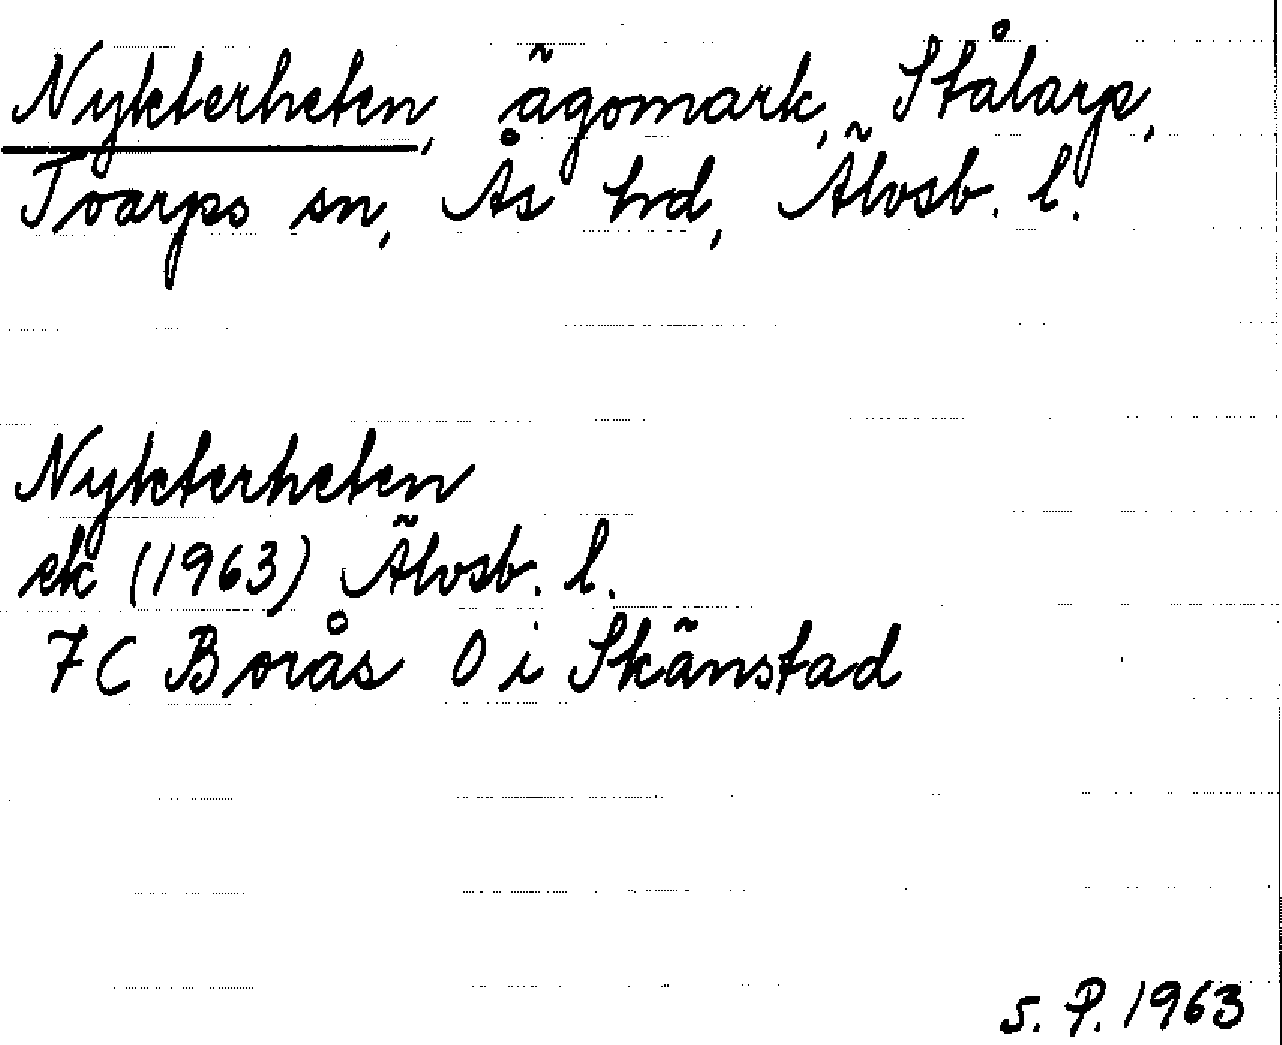 Nykterheten, ägomark, Stålarp,
Toarps sn, Ås hd, Älvsb. l.
Nykterheten
ek (1963) Älvsb. l.
7C Borås O i Skänstad
S. P. 1963